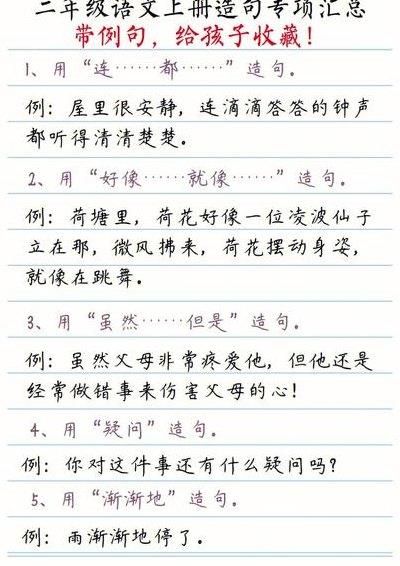 二年级语文上册造句专项汇总
带例句，给孩子收藏！
1、用“连……都……”造句。
例：屋里很安静，连滴滴答答的钟声
都听得清清楚楚。
2、用“好像……就像……”造句。
例：荷塘里，荷花好像一位凌波仙子
立在那，微风拂来，荷花摆动身姿，
就像在跳舞。
3、用“虽然……但是”造句。
例：虽然父母非常疼爱他，但他还是
经常做错事来伤害父母的心！
4、用“疑问”造句。
例：你对这件事还有什么疑问吗？
5、用“渐渐地”造句。
例：雨渐渐地停了。